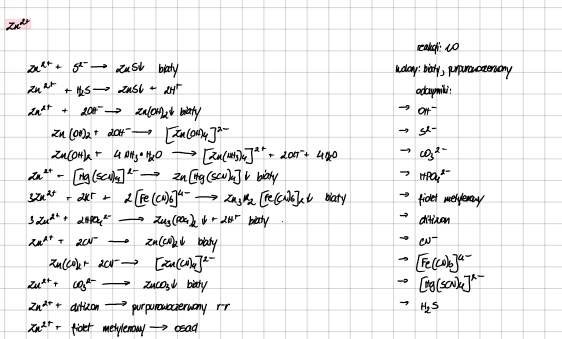 Zn²⁺
Zn²⁺ + S²⁻ → ZnS↓ biały
Zn²⁺ + H₂S → ZnS↓ + 2H⁺
Zn²⁺ + 2OH⁻ → Zn(OH)₂↓ biały
Zn(OH)₂ + 2OH⁻ → [Zn(OH)₄]²⁻
Zn(OH)₂ + 4NH₃·H₂O → [Zn(NH₃)₄]²⁺ + 2OH⁻ + 4H₂O
Zn²⁺ + [Hg(SCN)₄]²⁻ → Zn[Hg(SCN)₄]↓ biały
3Zn²⁺ + 2K⁺ + 2[Fe(CN)₆]⁴⁻ → Zn₃K₂[Fe(CN)₆]₂↓ biały
3Zn²⁺ + 2HPO₄²⁻ → Zn₃(PO₄)₂↓ + 2H⁺ biały
Zn²⁺ + 2CN⁻ → Zn(CN)₂↓ biały
Zn(CN)₂ + 2CN⁻ → [Zn(CN)₄]²⁻
Zn²⁺ + CO₃²⁻ → ZnCO₃↓ biały
Zn²⁺ + ditizon → purpurowoczerwony r-r
Zn²⁺ + fiolet metylenowy → osad
reakcji: 10
kolory: biały, purpurowoczerwony
odczynniki:
→ OH⁻
→ S²⁻
→ CO₃²⁻
→ HPO₄²⁻
→ fiolet metylenowy
→ ditizon
→ CN⁻
→ [Fe(CN)₆]⁴⁻
→ [Hg(SCN)₄]²⁻
→ H₂S